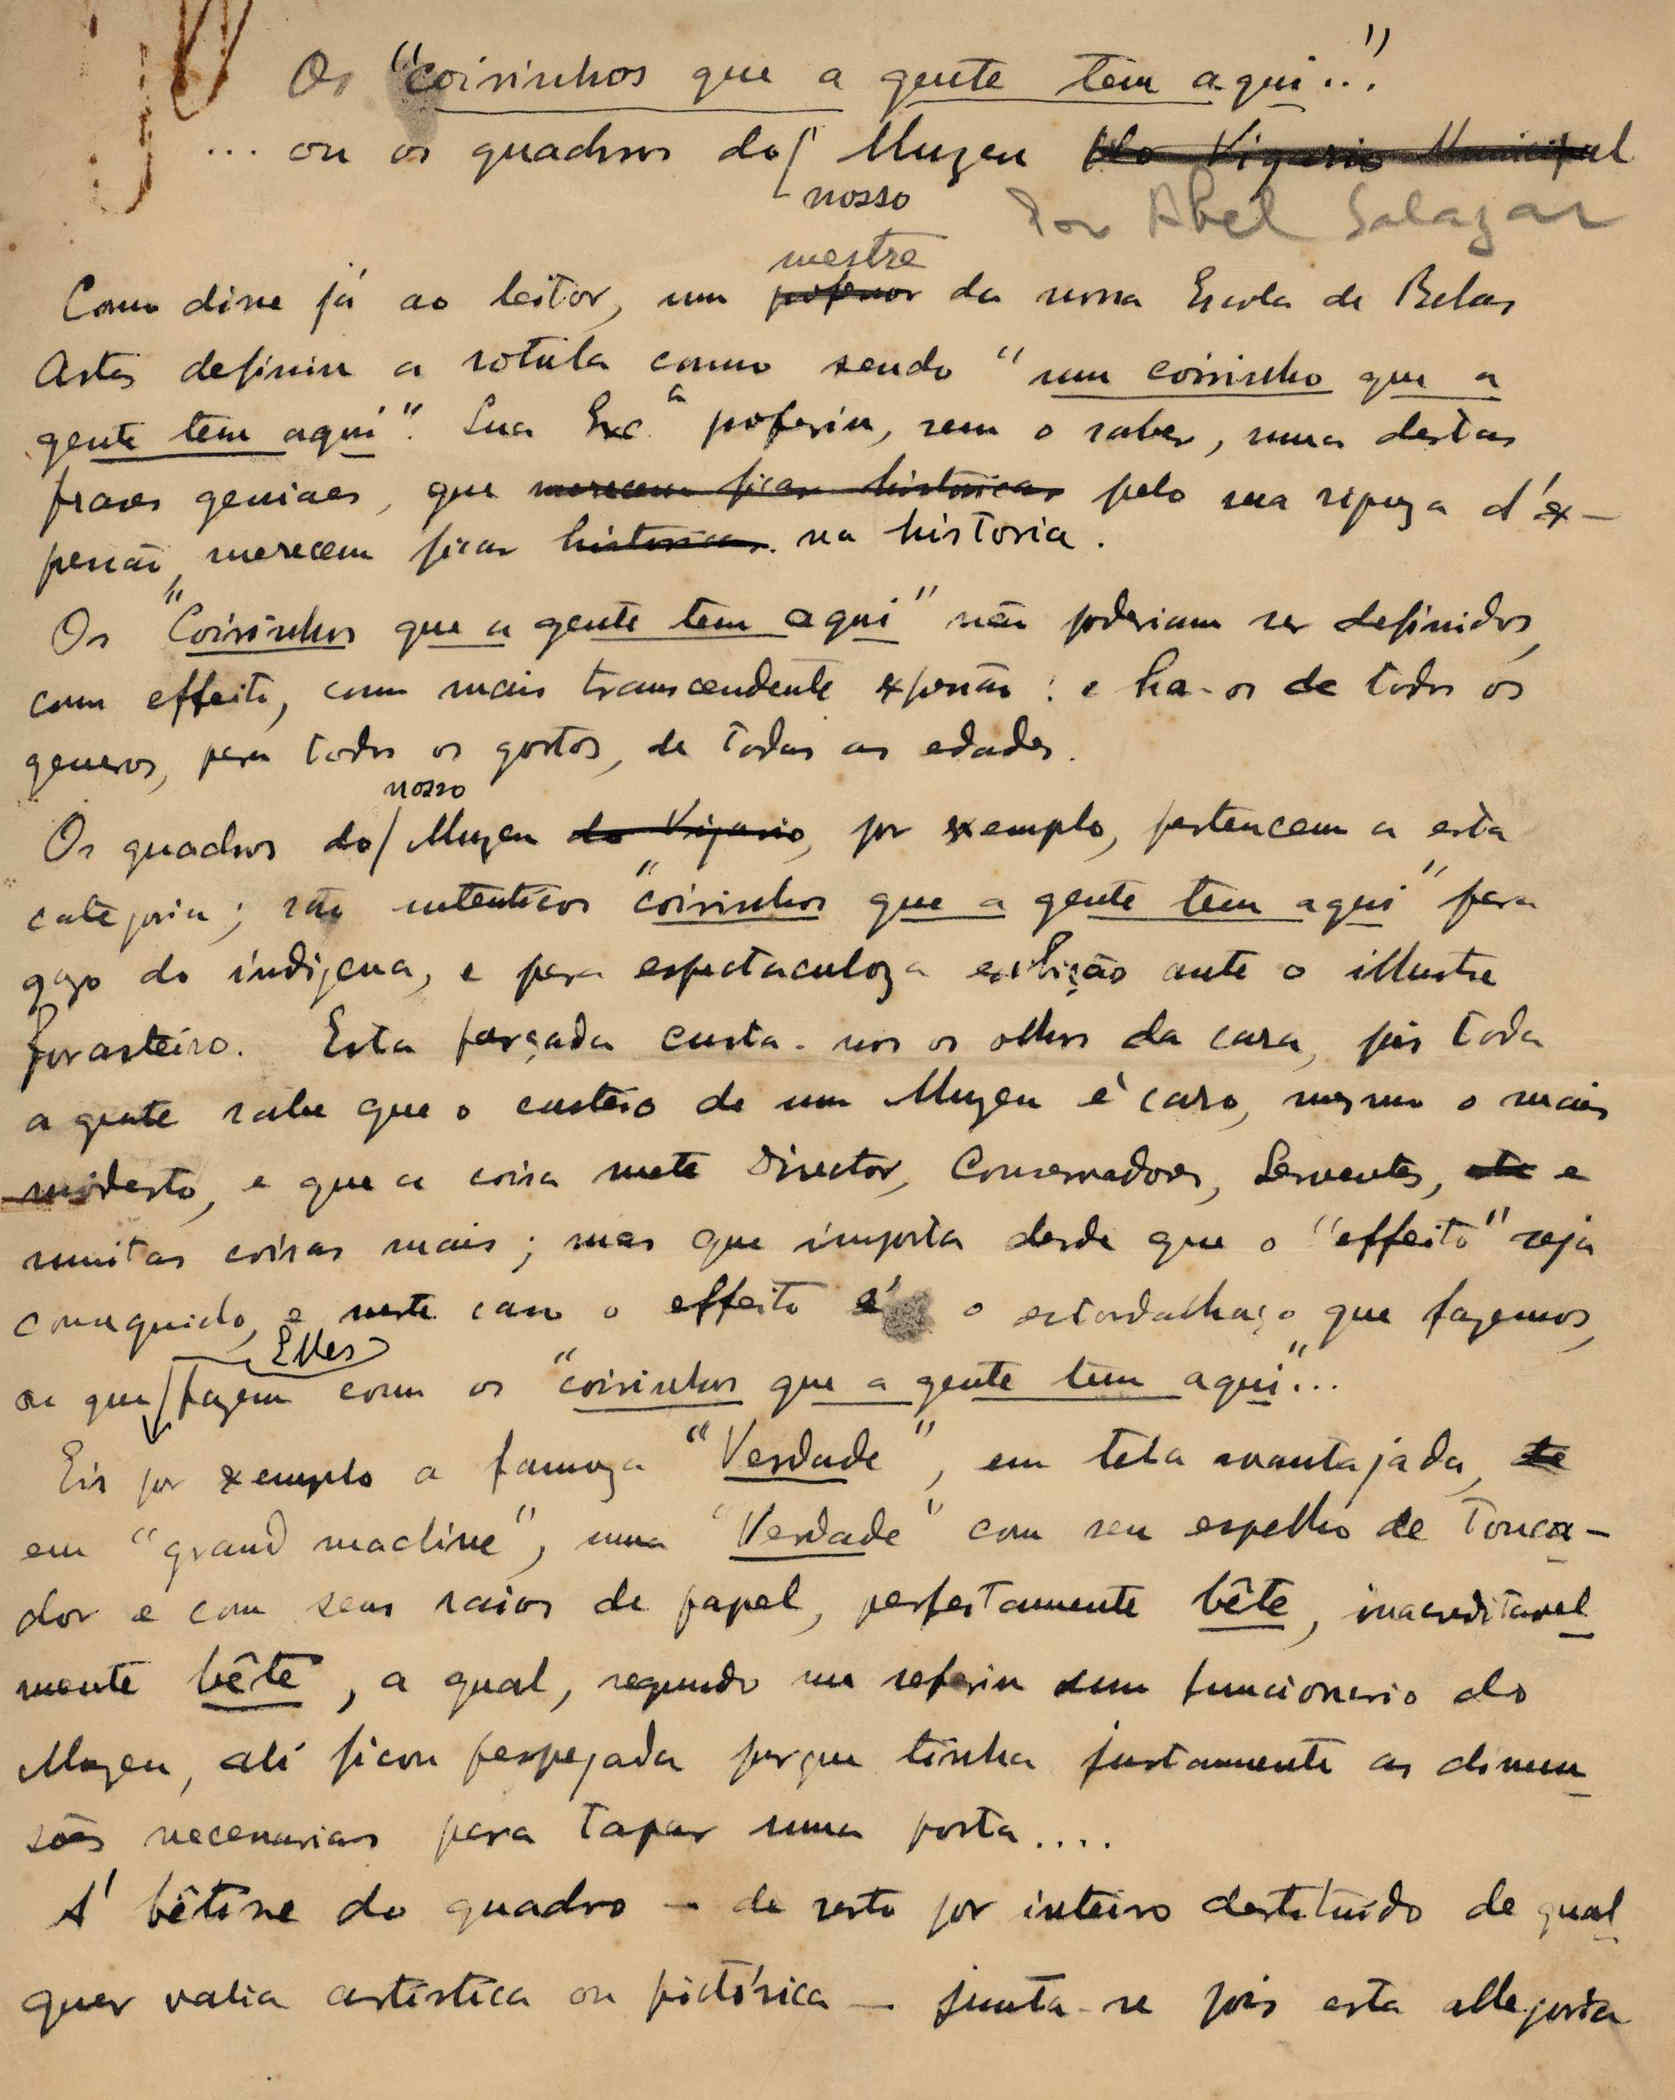 Os "coisinhos que a gente tem aqui..."
... ou os quadros do Muzeu do Vigario Municipal
nosso
Por Abel Salazar
mestre
Como disse já ao leitor, um professor da nossa Escola de Belas
Artes definiu a rotula como sendo "um coisinho que a
gente tem aqui". Sua Exc.ª proferiu, sem o saber, uma destas
frases geniaes, que merecem ficar historicas pelo sua riqueza d'ex-
pressão, merecem ficar historicas na historia.
Os "Coisinhos que a gente tem aqui" não poderiam ser definidos,
com effeito, com mais transcendente expressão: e ha-os de todos os
generos, para todos os gostos, de todas as edades.
nosso
Os quadros do Muzeu do Vigario, por exemplo, pertencem a esta
categoria; são autenticos "coisinhos que a gente tem aqui" para
gozo do indigena, e para espectaculoza exibição ante o illustre
forasteiro. Esta farçada custa-nos os olhos da cara, pois toda
a gente sabe que o custeio de um Muzeu é caro, mesmo o mais
modesto, e que a coisa mete Director, Conservadores, Serventes, etc e
muitas coisas mais; mas que importa desde que o "effeito" seja
conseguido, e neste caso o effeito é o estardalhaço que fazemos,
Elles
ou que fazem com os "coisinhos que a gente tem aqui"...
Eis por exemplo a famoza "Verdade", em tela avantajada, de
em "grand machine", uma "Verdade" com seu espelho de Touca-
dor e com seus raios de papel, perfeitamente bête, inacreditavel
mente bête, a qual, segundo me referiu um funcionario do
Muzeu, ali ficou pespegada porque tinha justamente as dimen
sões necessarias para tapar uma porta....
Á bêtise do quadro - de resto por inteiro destituido de qual
quer valia artistica ou pictórica - junta-se pois esta allegoria